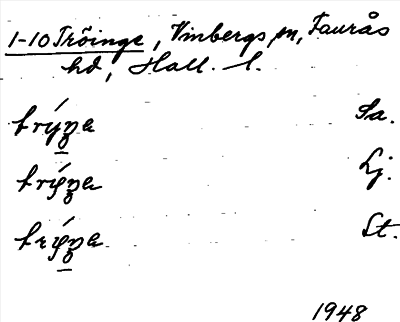 1-10 Tröinge, Vinbergs sn, Faurås
hd, Hall. l.
Sa.
Lj.
St.
1948